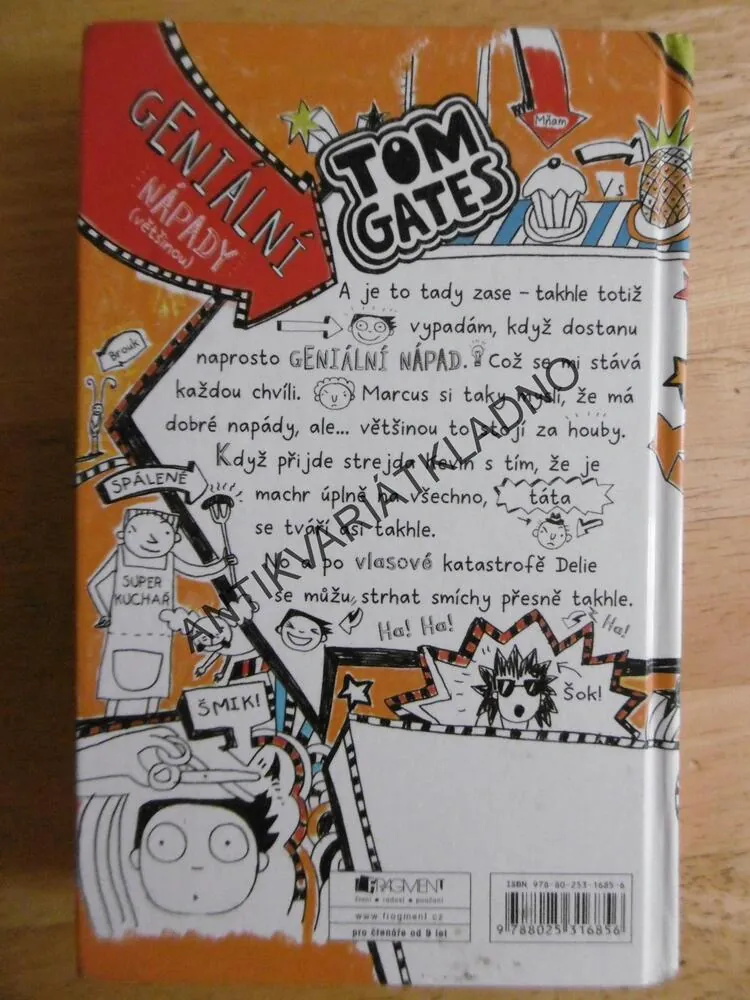 GENIÁLNÍ
NÁPADY
(většinou)
TOM
GATES
Mňam
Vs
A je to tady zase – takhle totiž
vypadám, když dostanu
naprosto GENIÁLNÍ NÁPAD. Což se mi stává
každou chvíli. Marcus si taky myslí, že má
dobré napády, ale... většinou to stojí za houby.
Když přijde strejda Kevin s tím, že je
machr úplně na všechno, táta
se tváří asi takhle.
Jo a po vlasové katastrofě Delie
se můžu strhat smíchy přesně takhle.
Brouk
SPÁLENÉ
SUPER
KUCHAŘ
Ha! Ha!
Ha!
Šok!
ŠMIK!
ANTIKVARIÁTKLADNO
FRAGMENT
čtení • radost • poučení
www.fragment.cz
pro čtenáře od 9 let
ISBN 978-80-253-1685-6
9 788025 316856